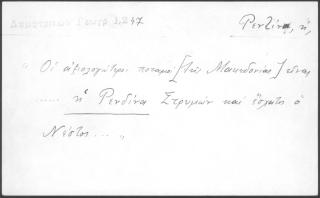 1,247
Ρεντίνα, ἡ,
" Οἱ ἀξιολογώτεροι ποταμοὶ [τῆς Μακεδονίας] εἶναι
..... ἡ Ρενδίνα Στρυμών καὶ ἔσχατος ὁ
Νέστος... "